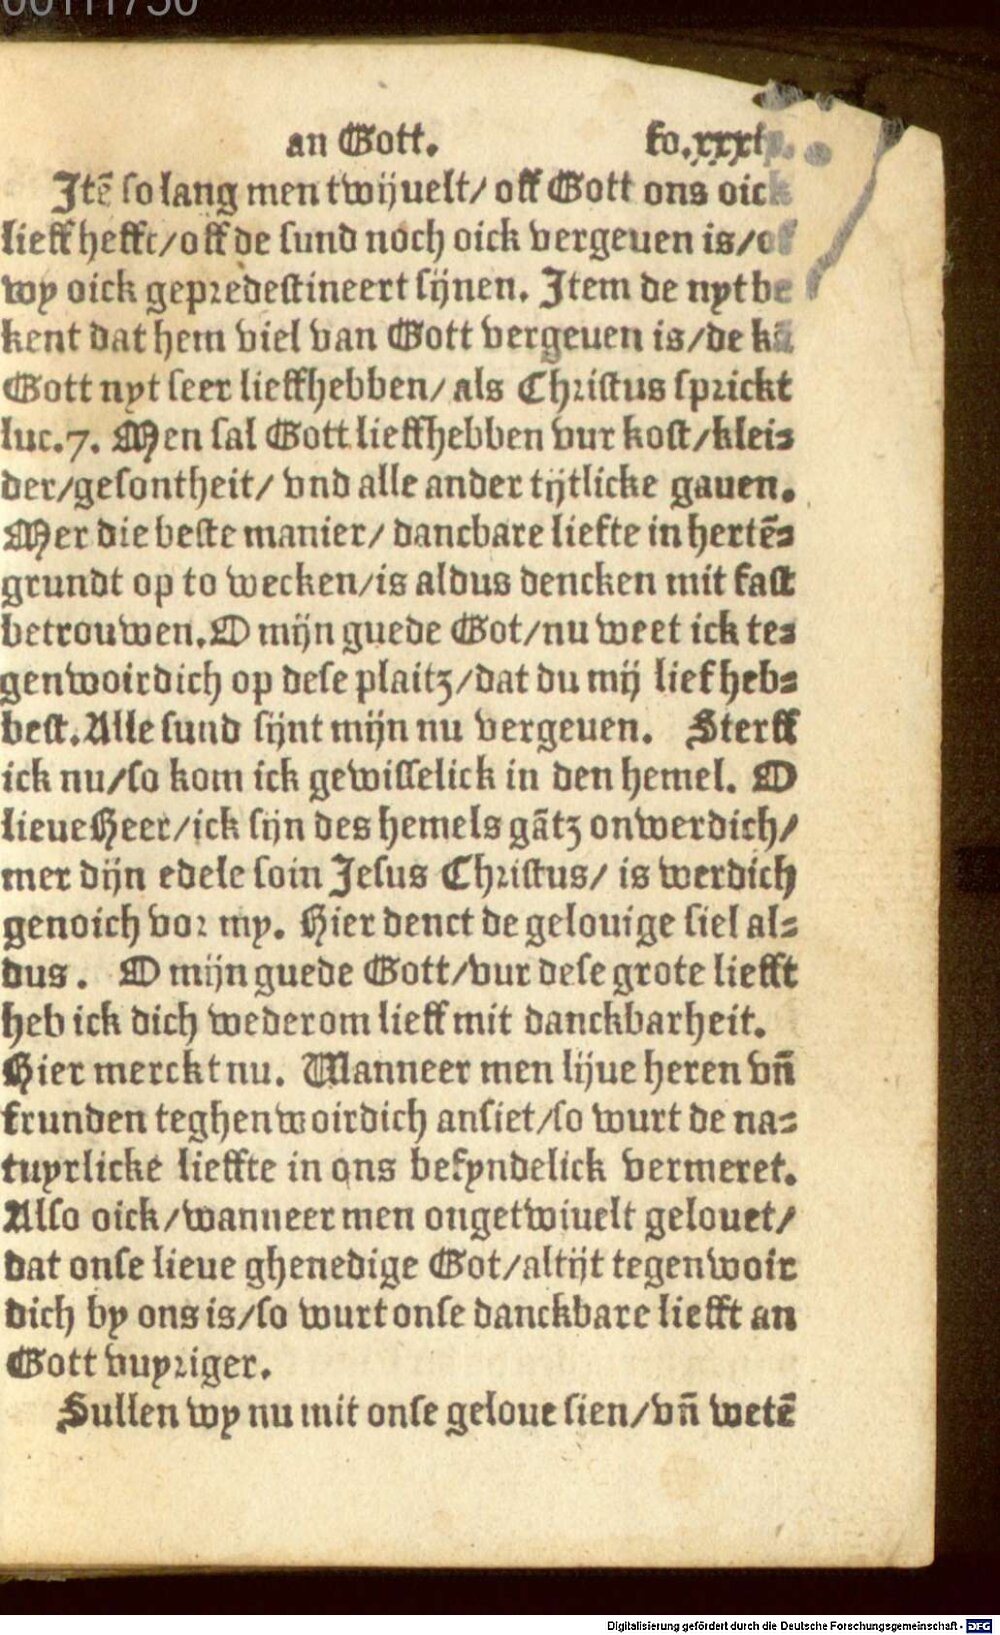 an Gott. fo.xxxix.
Itē so lang men twijuelt/ off Gott ons oick
lieff hefft/off de sund noch oick vergeuen is/of
wy oick gepredestineert sijnen. Item de nyt be
kent dat hem viel van Gott vergeuen is/de kā
Gott nyt seer lieffhebben/ als Christus sprickt
luc.7. Men sal Gott lieffhebben vur kost/klei⸗
der/gesontheit/ vnd alle ander tijtlicke gauen.
Mer die beste manier/ dancbare liefte in hertē⸗
grundt op to wecken/is aldus dencken mit fast
betrouwen.O mijn guede Got/nu weet ick te⸗
genwoirdich op dese plaitz/dat du mij lief heb⸗
best.Alle sund sijnt mijn nu vergeuen. Sterff
ick nu/so kom ick gewisselick in den hemel. O
lieue Heer/ick sijn des hemels gātz onwerdich/
mer dijn edele soin Jesus Christus/ is werdich
genoich vor my. Hier denct de gelouige siel al⸗
dus. O mijn guede Gott/vur dese grote liefft
heb ick dich wederom lieff mit danckbarheit.
Hier merckt nu. Wanneer men lijue heren vn̄
frunden teghenwoirdich ansiet/so wurt de na⸗
tuyrlicke lieffte in ons befyndelick vermeret.
Also oick/wanneer men ongetwiuelt gelouet/
dat onse lieue ghenedige Got/altijt tegenwoir
dich by ons is/so wurt onse danckbare liefft an
Gott vuyriger.
Sullen wy nu mit onse geloue sien/vn̄ wetē
Digitalisierung gefördert durch die Deutsche Forschungsgemeinschaft - DFG